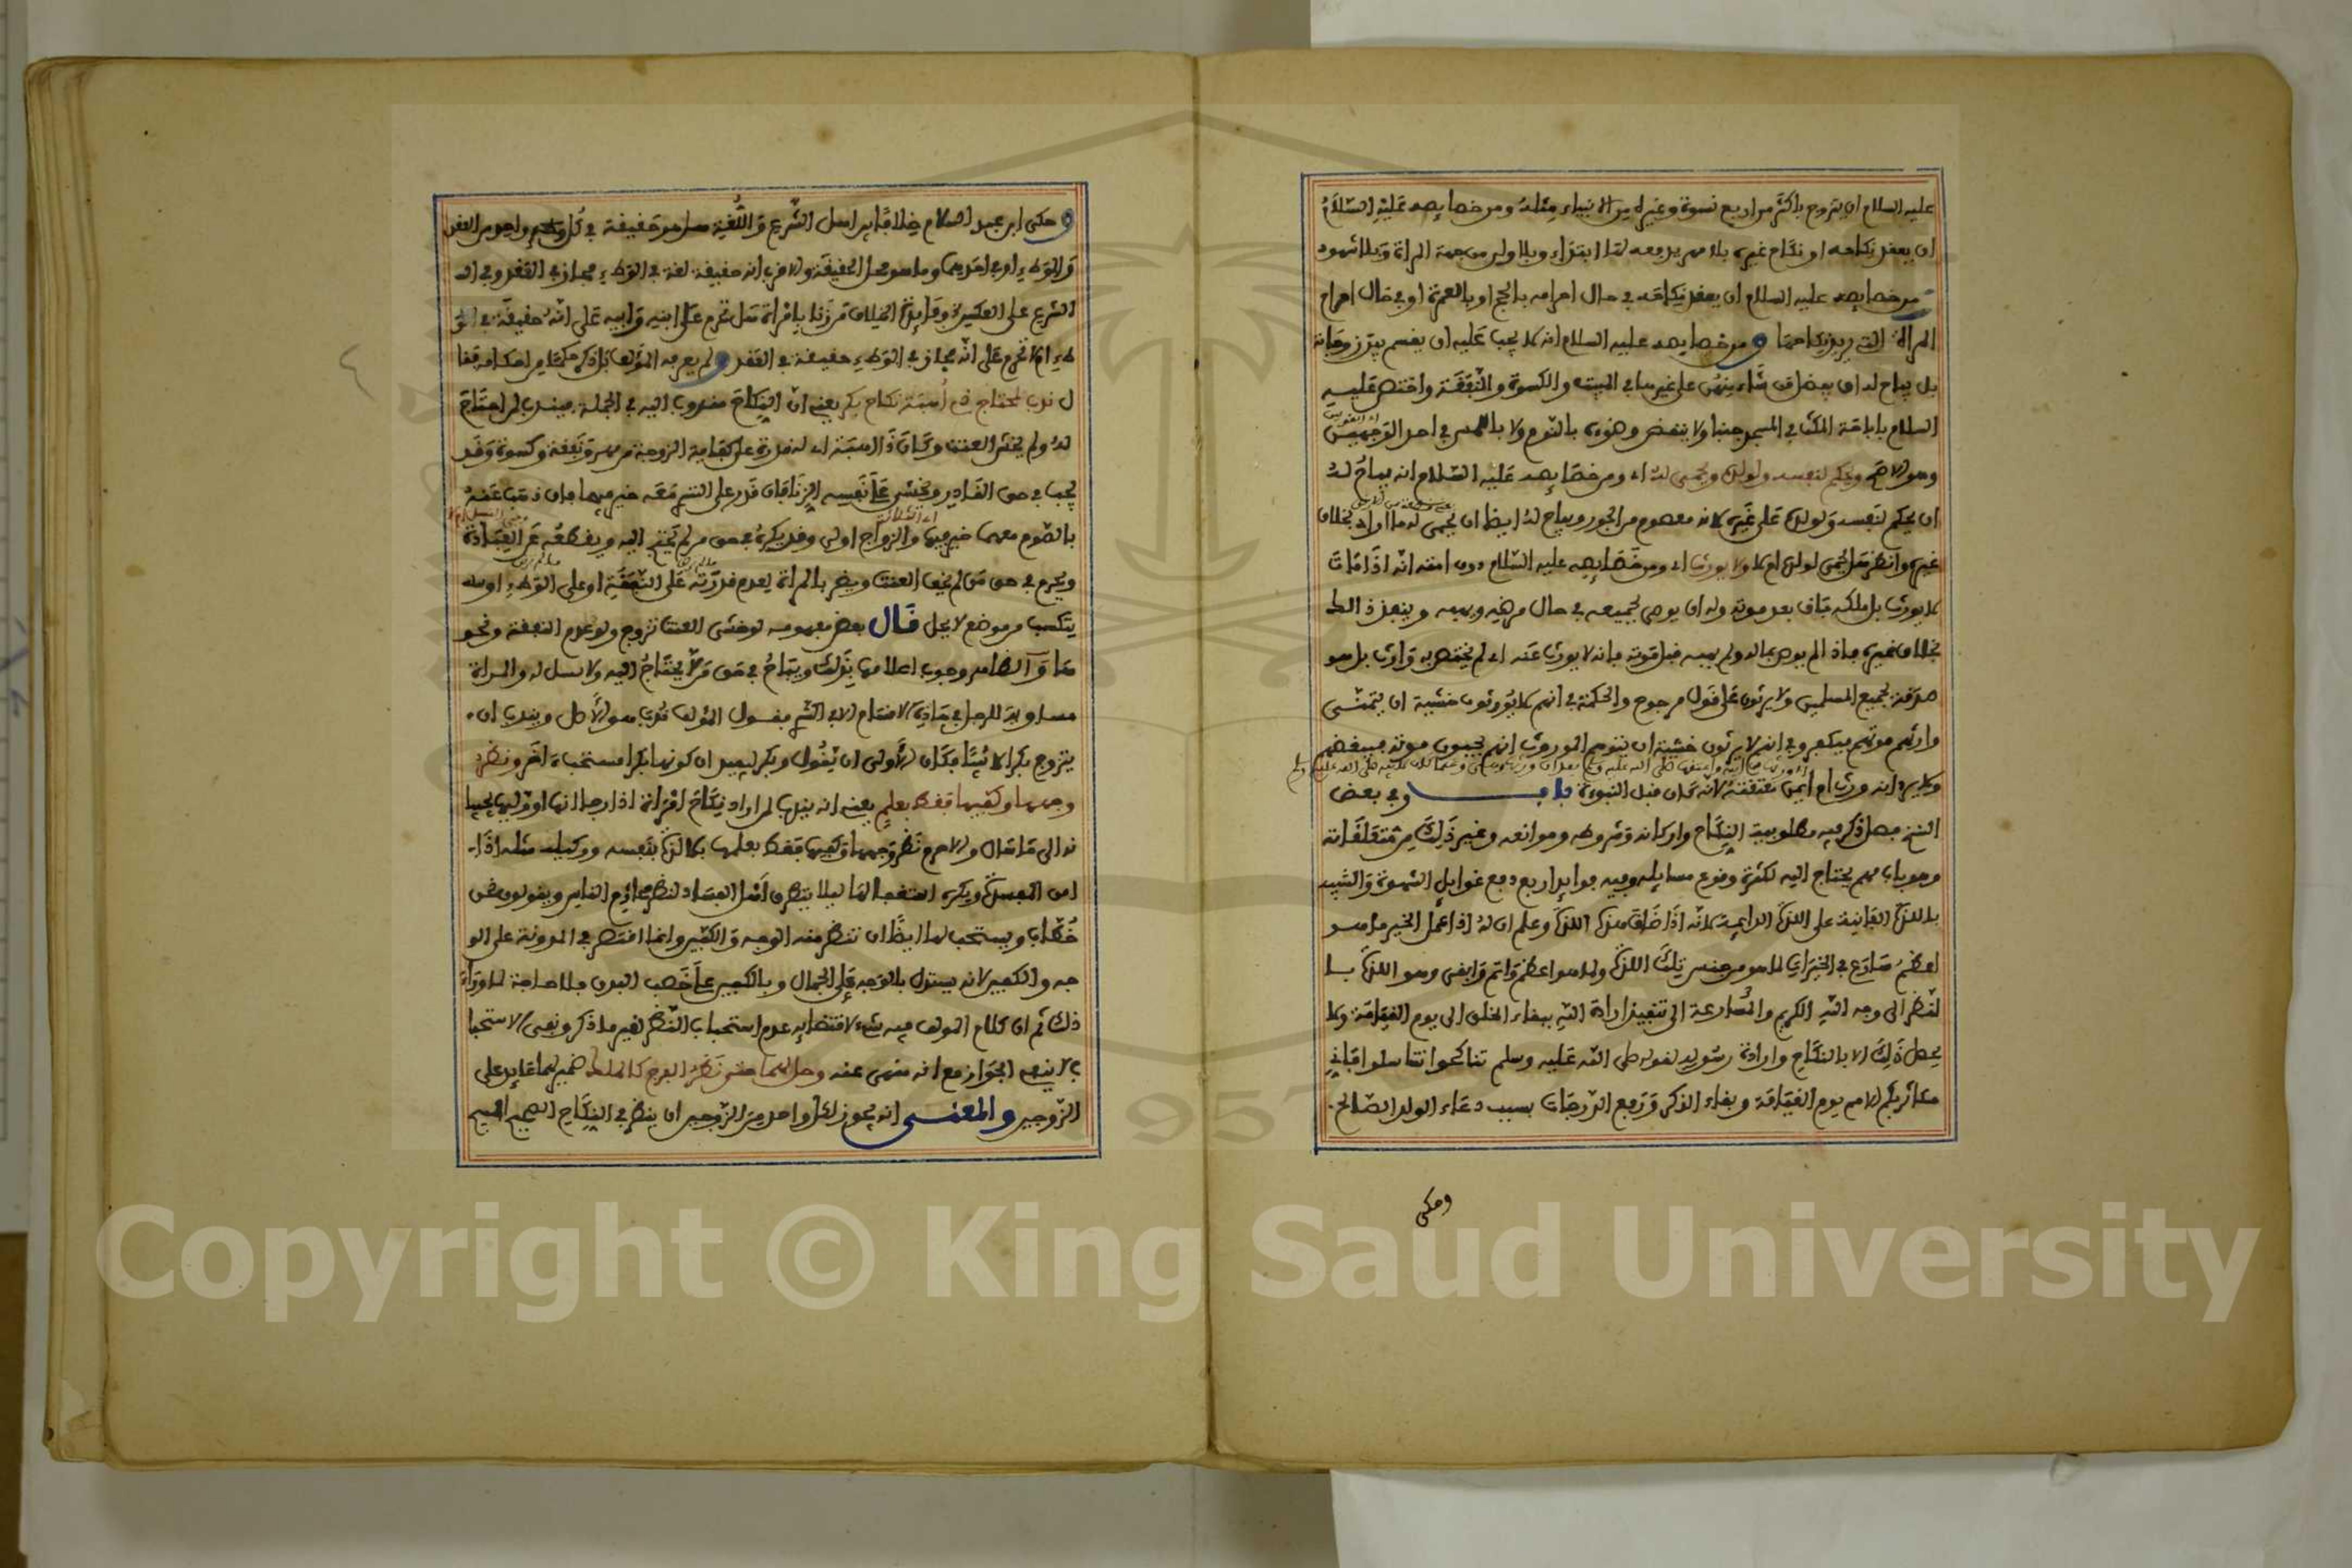 عليه السلام ان يتزوج باكثر من اربع نسوة وغيره من الانبياء مثله ومن خصايصه عليه السلام
ان يعقد نكاحه او نكاح غيره بلا مهر يدفعه لها ابتداء وبلا ولي من جهة المراة وبلا شهود
ومن خصايصه عليه السلام ان يعقد نكاحه في حال احرامه بالحج او بالعمرة او في حال احرام
المراة التي يريد نكاحها ومن خصايصه عليه السلام انه لا يجب عليه ان يقسم بين زوجاته
بل يباح له ان يفضل من شاء منهن على غيرها في المبيت والكسوة والنفقة واختص عليه
السلام باباحة المكث في المسجد جنبا ولا ينتقض وضوءه بالنوم ولا باللمس في احد الوجهين
وهو الاصح ويحكم لنفسه ولولده ويحمي له اي ومن خصايصه عليه السلام انه يباح له
ان يحكم لنفسه ولولده على غيره لانه معصوم من الجور ويباح له ايضا ان يحمي له ما اراد بخلاف
غيره وانظر هل يحمي لولده ام لا ولا يورث اي ومن خصايصه عليه السلام دون امته انه اذا مات
لا يورث بل ملكه باق بعد موته وله ان يوصي بجميعه في حال مرضه ويهبه وينفذ ذالك
بخلاف غيره فاذا لم يوص بماله ولم يهبه قبل موته فانه لا يورث عنه اي لم يختص به وارث بل هو
صدقة لجميع المسلمين ولا يرثون على قول مرجوح والحكمة في انهم لا يورثون خشية ان يتمنى
وارثهم موتهم فيكفر وفي انهم لا يرثون خشية ان يتوهم الموروث انهم يحبون موته فيبغضهم
ولا يرد انه ورث ام ايمن بعتقته لانه كان قبل النبوة باب وفي بعض
النسخ فصل ذكر فيه مطلوبية النكاح واركانه وشروطه وموانعه وغير ذلك من متعلقاته
وهو باب مهم يحتاج اليه لكثرة وقوع مسايله وفيه فوايد اربع دفع غوايل الشهوة والتنبيه
باللذة الفانية على اللذة الدايمة لانه اذا ذاق هذه اللذة وعلم ان له اذا عمل الخير ما هو
اعظم سارع في الخيرات لما هو من جنس تلك اللذة ولما هو اعظم واتم وابقى وهو اللذة با
لنظر الى وجه الله الكريم والمسارعة الى تنفيذ ارادة الله ببقاء الخلق الى يوم القيامة ولا
يحصل ذلك الا بالنكاح وارادة رسوله لقوله صلى الله عليه وسلم تناكحوا تناسلوا فاني
مكاثر بكم الامم يوم القيامة وبقاء الذكر ورفع الدرجات بسبب دعاء الولد الصالح
وحكى
وحكى ابن عبد السلام خلافا بين اهل الشرع واللغة هل هو حقيقة في كل واحد من العقد
والوطء او في احدهما وما هو محل الحقيقة والاقرب انه حقيقة لغة في الوطء مجاز في العقد وفي
الشرع على العكس وفايدة الخلاف من زنا بامراة هل تحرم على ابنه وابيه على انه حقيقة في الو
طء ام لا تحرم على انه مجاز في الوطء حقيقة في العقد ولم يعرفه المؤلف بل ذكر حكما من احكامه فقا
ل ندب لمحتاج ذي اهبة نكاح بكر يعني ان النكاح مندوب اليه في الجملة فيندب لمن احتاج
له ولم يخش العنت وكان ذا اهبة اي له قدرة على كفاية الزوجة من مهر ونفقة وكسوة وقد
يجب في حق القادر ويخشى على نفسه الزنا فان قدر على التسري معه خير بينهما فان ذهب عنه
بالصوم معهما خير فيها والزواج اولى وقد يكره في حق من لم يحتج اليه ويقطعه عن العبادة
ويحرم في حق من لم يخف العنت ويضر بالمراة لعدم قدرته على النفقة او على الوطء او
يتكسب من موضع لا يحل قال بعض مفهومه لو خشي العنت تزوج ولو عدم النفقة ونحو
ها والظاهر وجوب اعلامها بذلك ويباح في حق من لا يحتاج اليه ولا نسل له والمراة
مساوية للرجل في هذه الاقسام الا في التسري فقول المؤلف ندب هو الاصل ويندب ان
يتزوج بكرا لا ثيبا فكان الاولى ان يقول وبكر ليفيد ان كونها بكرا مستحب اخر ونظر
وجهها وكفيها فقط بعلم يعني انه يندب لمن اراد نكاح امراة اذا رجا انها او وليها يجيبا
نه الى ما سال والا حرم نظر وجهها وكفيها فقط بعلمها بلا لذة بنفسه ووكيله مثله اذا
امن المفسدة ويكره استغفالها ليلا يتطرق اهل الفساد لنظر محارم الناس ويقولون نحن
خطاب ويستحب لها ايضا ان تنظر منه الوجه والكفين وانما اقتصر في المدونة على الو
جه والكفين لانه يستدل بالوجه على الجمال وبالكفين على خصب البدن فلا حاجة لما وراء
ذلك ثم ان كلام المؤلف فيه شيء لاقتضايه عدم استحباب النظر لغير ما ذكر ونفي الاستحبا
ب لا ينفي الجواز مع انه منهي عنه وحل لهما حتى نظر الفرج كالملك ضمير لهما عايد على
الزوجين والمعنى انه يجوز لكل واحد من الزوجين ان ينظر في النكاح الصحيح المبيح
Copyright © King Saud University